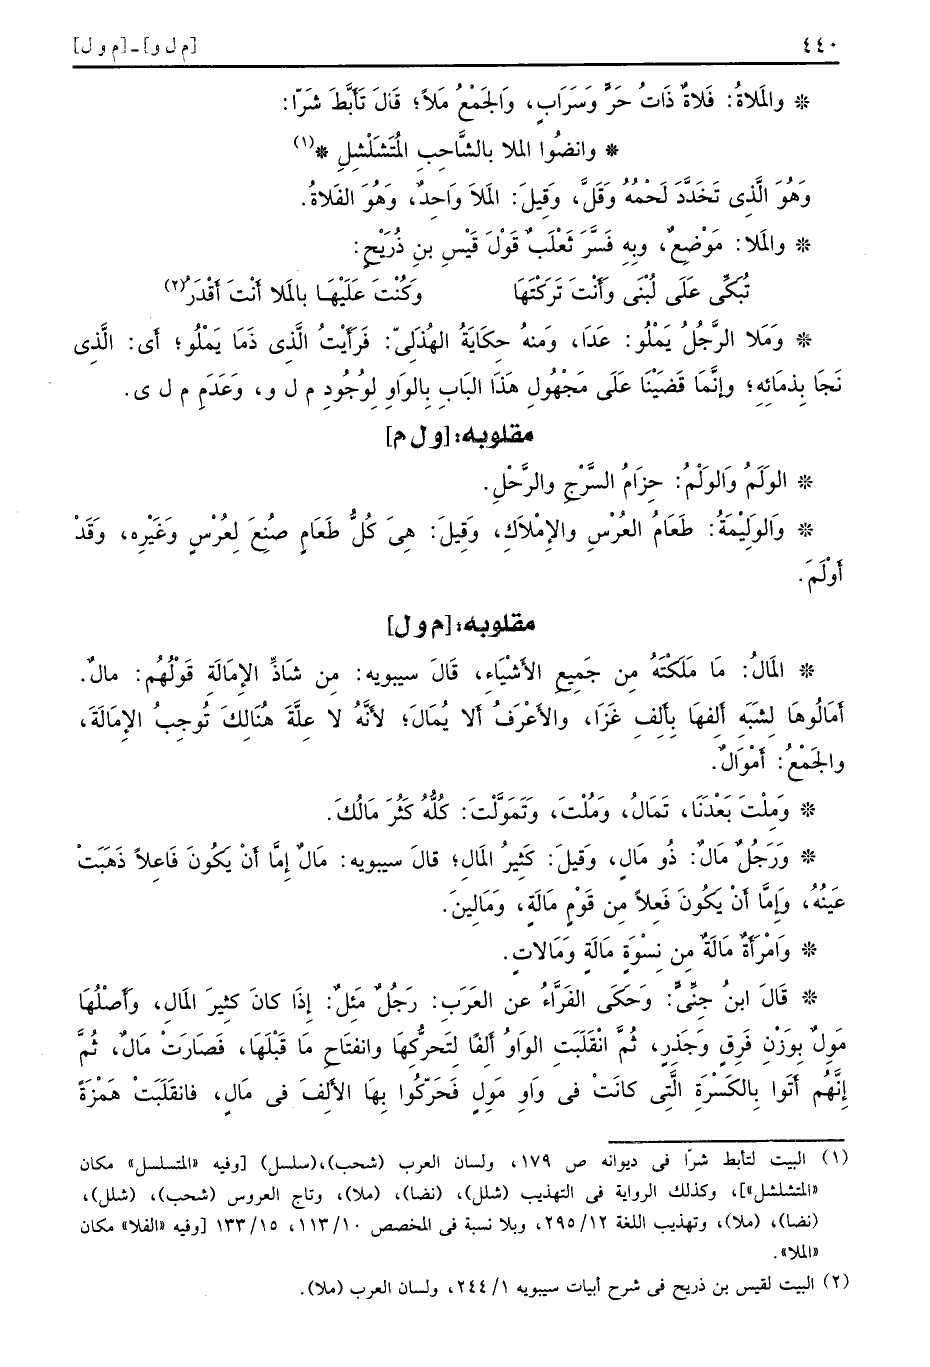 ٤٤٠
[م ل و] - [م و ل]
* والمَلاةُ: فَلاةٌ ذَاتُ حَرٍّ وَسَرَابٍ، وَالجَمْعُ مَلاً؛ قَالَ تَأَبَّطَ شَرّا:
* وانضُوا الملا بالشَّاحِبِ المُتَشَلْشِلِ *(١)
وَهُوَ الَّذِى تَخَدَّدَ لَحْمُهُ وَقَلَّ، وَقِيلَ: المَلاَ وَاحِدٌ، وَهُوَ الفَلاةُ.
* والمَلا: مَوْضِعٌ، وبِهِ فَسَّرَ ثَعْلَبٌ قَوْلَ قَيْسِ بنِ ذُرَيْحٍ:
تُبَكِّى عَلَى لُبْنَى وأنْتَ تَرَكْتَهَا وَكُنْتَ عَلَيْهَا بالمَلا أنْتَ أقْدَرُ(٢)
* وَمَلا الرَّجُلُ يَمْلُو: عَدَا، وَمنهُ حِكَايَةُ الهُذَلىِّ: فَرَأيْتُ الَّذى ذَمَا يَمْلُو؛ أى: الَّذِى
نَجَا بِذَمائِهِ؛ وإنَّمَا قَضَيْنَا عَلَى مَجْهُولِ هَذَا البَابِ بِالوَاوِ لِوُجُودِ م ل و، وَعَدَمِ م ل ى.
مقلوبه: [و ل م]
* الوَلَمُ وَالوَلْمُ: حِزَامُ السَّرْجِ والرَّحْلِ.
* وَالوَلِيْمَةُ: طَعَامُ العُرْسِ والإمْلاَكِ، وَقِيلَ: هِىَ كُلُّ طَعَامٍ صُنِعَ لِعُرْسٍ وَغَيْرِه، وَقَدْ
أَوْلَمَ.
مقلوبه: [م و ل]
* المَالُ: مَا مَلَكْتَهُ مِن جَمِيعِ الأشْيَاءِ، قَالَ سيبويه: مِن شَاذِّ الإمَالَةِ قَوْلُهُم: مالٌ.
أمَالُوهَا لِشَبَهِ ألفِهَا بِألفِ غَزَا، والأعْرَفُ ألا يُمَالَ؛ لأنَّهُ لا عِلَّةَ هُنَالِكَ تُوجِبُ الإمَالَةَ،
والجَمْعُ: أمْوَالٌ.
* وَمِلْتَ بَعْدَنَا، تَمَالُ، وَمُلْتَ، وَتَمَوَّلْتَ: كُلُّهُ كَثُرَ مَالُكَ.
* وَرَجُلٌ مَالٌ: ذُو مَالٍ، وَقِيلَ: كَثِيرُ المَالِ؛ قالَ سيبويه: مَالٌ إمَّا أنْ يَكُونَ فَاعِلاً ذَهَبَتْ
عَينُهُ، وَإمَّا أنْ يَكُونَ فَعِلاً مِن قَوْمٍ مَالَةٍ، وَمَالِينَ.
* وَامْرَأةٌ مَالَةٌ مِن نِسْوَةٍ مَالَةٍ وَمَالاتٍ.
* قَالَ ابنُ جِنِّىٍّ: وَحَكَى الفَرَّاءُ عنِ العَرَبِ: رَجُلٌ مَئِلٌ: إذَا كانَ كَثيرَ المَالِ، وأصْلُهَا
مَوِلٌ بِوَزْنِ فَرِقٍ وَحَذِرٍ، ثُمَّ انْقَلَبَتِ الوَاوُ ألفًا لِتَحرُّكِهَا وانفتَاحِ مَا قَبْلَهَا، فَصَارَتْ مَالٌ، ثُمَّ
إنَّهُم أتَوا بِالكَسْرَةِ الَّتِى كانَتْ فى وَاوِ مَوِلٍ فَحَرّكُوا بِهَا الألِفَ فى مَالٍ، فانقَلَبَتْ هَمْزَةً
(١) البيت لتأبط شرّا فى ديوانه ص ١٧٩، ولسان العرب (شحب)،(سلسل) [وفيه «المتسلسل» مكان
«المتشلشل»]، وكذلك الرواية فى التهذيب (شلل)، (نضا)، (ملا)، وتاج العروس (شحب)، (شلل)،
(نضا)، (ملا)، وتهذيب اللغة ٢٩٥/١٢، وبلا نسبة فى المخصص ١١٣/١٠، ١٣٣/١٥ [وفيه «الفلا» مكان
«الملا».
(٢) البيت لقيس بن ذريح فى شرح أبيات سيبويه ٢٤٤/١، ولسان العرب (ملا).